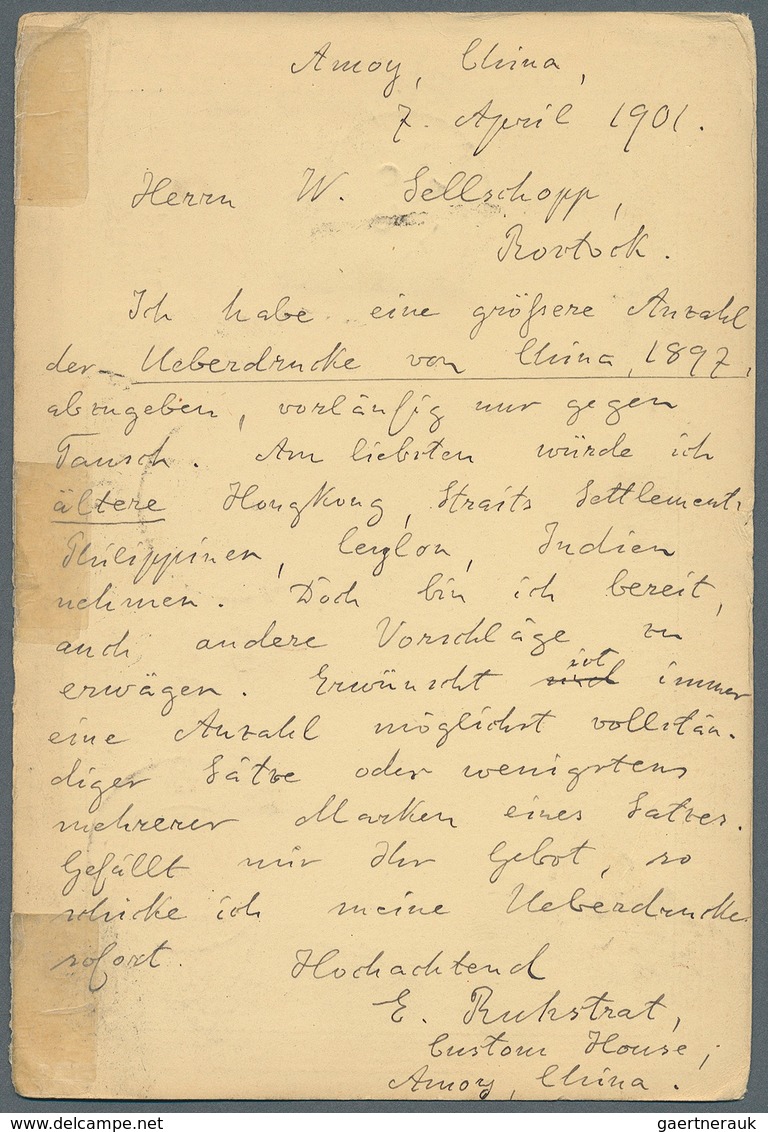 Amoy, China,
7. April 1901.
Herrn W. Sellschopp,
Rostock.
Ich habe eine größere Anzahl
der Ueberdrucke von China, 1897,
abzugeben, vorläufig nur gegen
Tausch. Am liebsten würde ich
ältere Hongkong, Straits Settlements,
Philippinen, Ceylon, Indien
nehmen. Doch bin ich bereit,
auch andere Vorschläge zu
erwägen. Erwünscht ist immer
eine Anzahl möglichst vollstän-
diger Sätze oder wenigstens
mehrerer Marken eines Satzes.
Gefällt mir Ihr Gebot, so
schicke ich meine Ueberdrucke
sofort. Hochachtend
E. Ruhstrat,
Custom House,
Amoy, China.
www.ma-shops.com
gaertnerauk